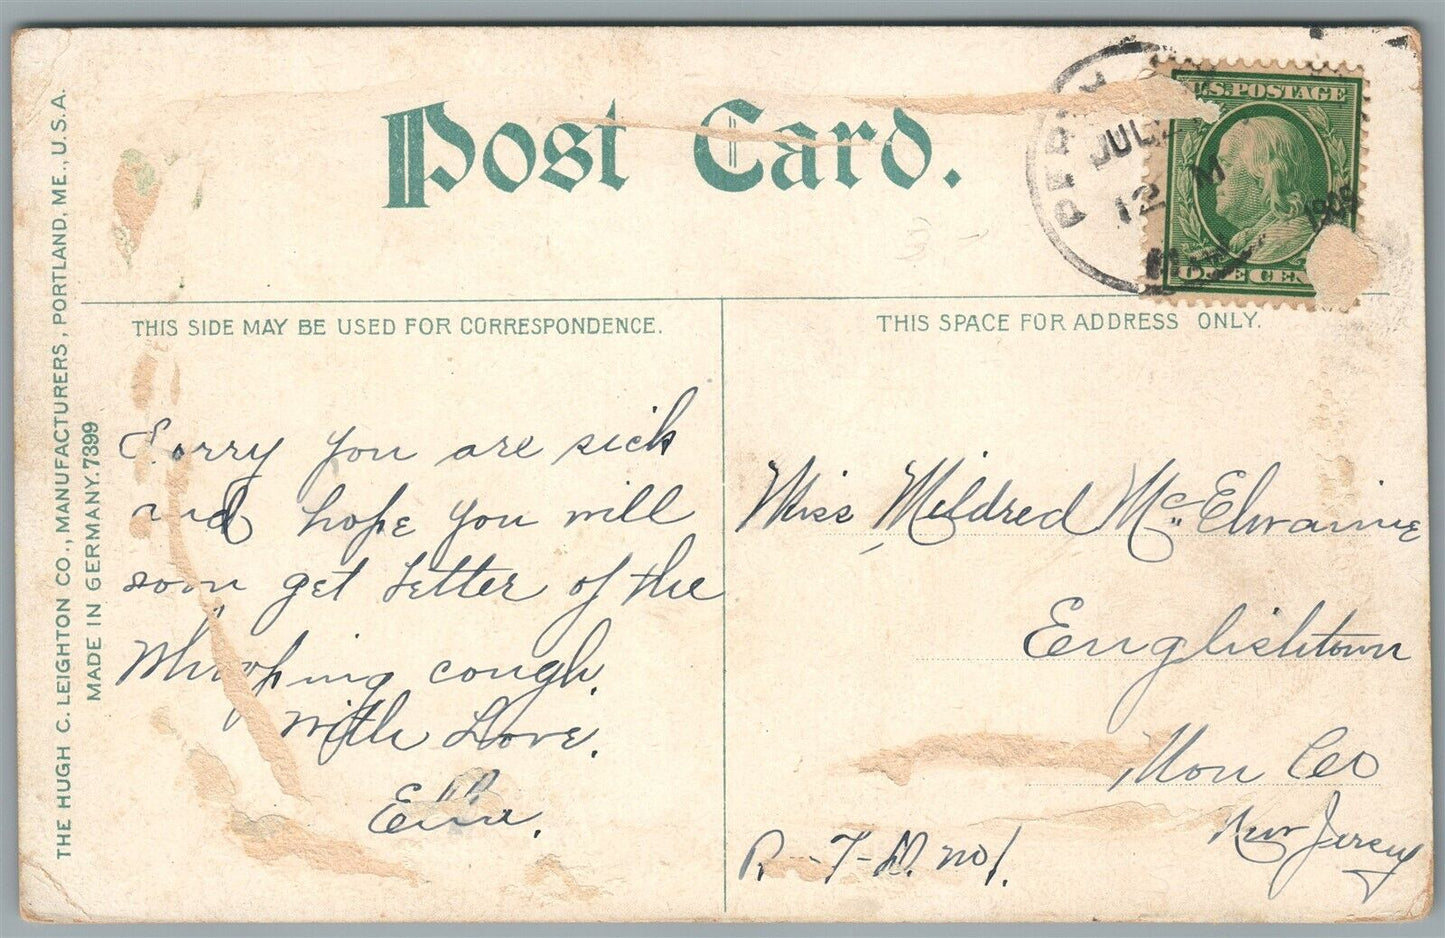 Post Card.
U.S. POSTAGE
JUL 2
12 M
1909
ONE CEN
THE HUGH C. LEIGHTON CO., MANUFACTURERS, PORTLAND, ME., U.S.A.
MADE IN GERMANY. 7399
THIS SIDE MAY BE USED FOR CORRESPONDENCE.
Sorry you are sick
and hope you will
soon get better of the
Whooping cough.
With Love.
THIS SPACE FOR ADDRESS ONLY.
Miss Mildred McElwaine
Englishtown
Mon Co
New Jersey
R-F-D. no 1.